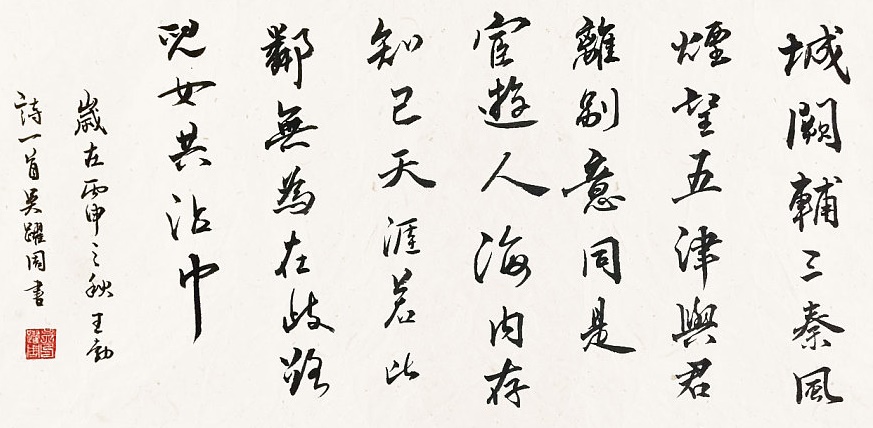 城闕輔三秦風
煙望五津與君
離别意同是
宦遊人海内存
知己天涯若比
鄰無為在歧路
兒女共沾巾
歲在丙申之秋王勃
詩一首吴躍周書